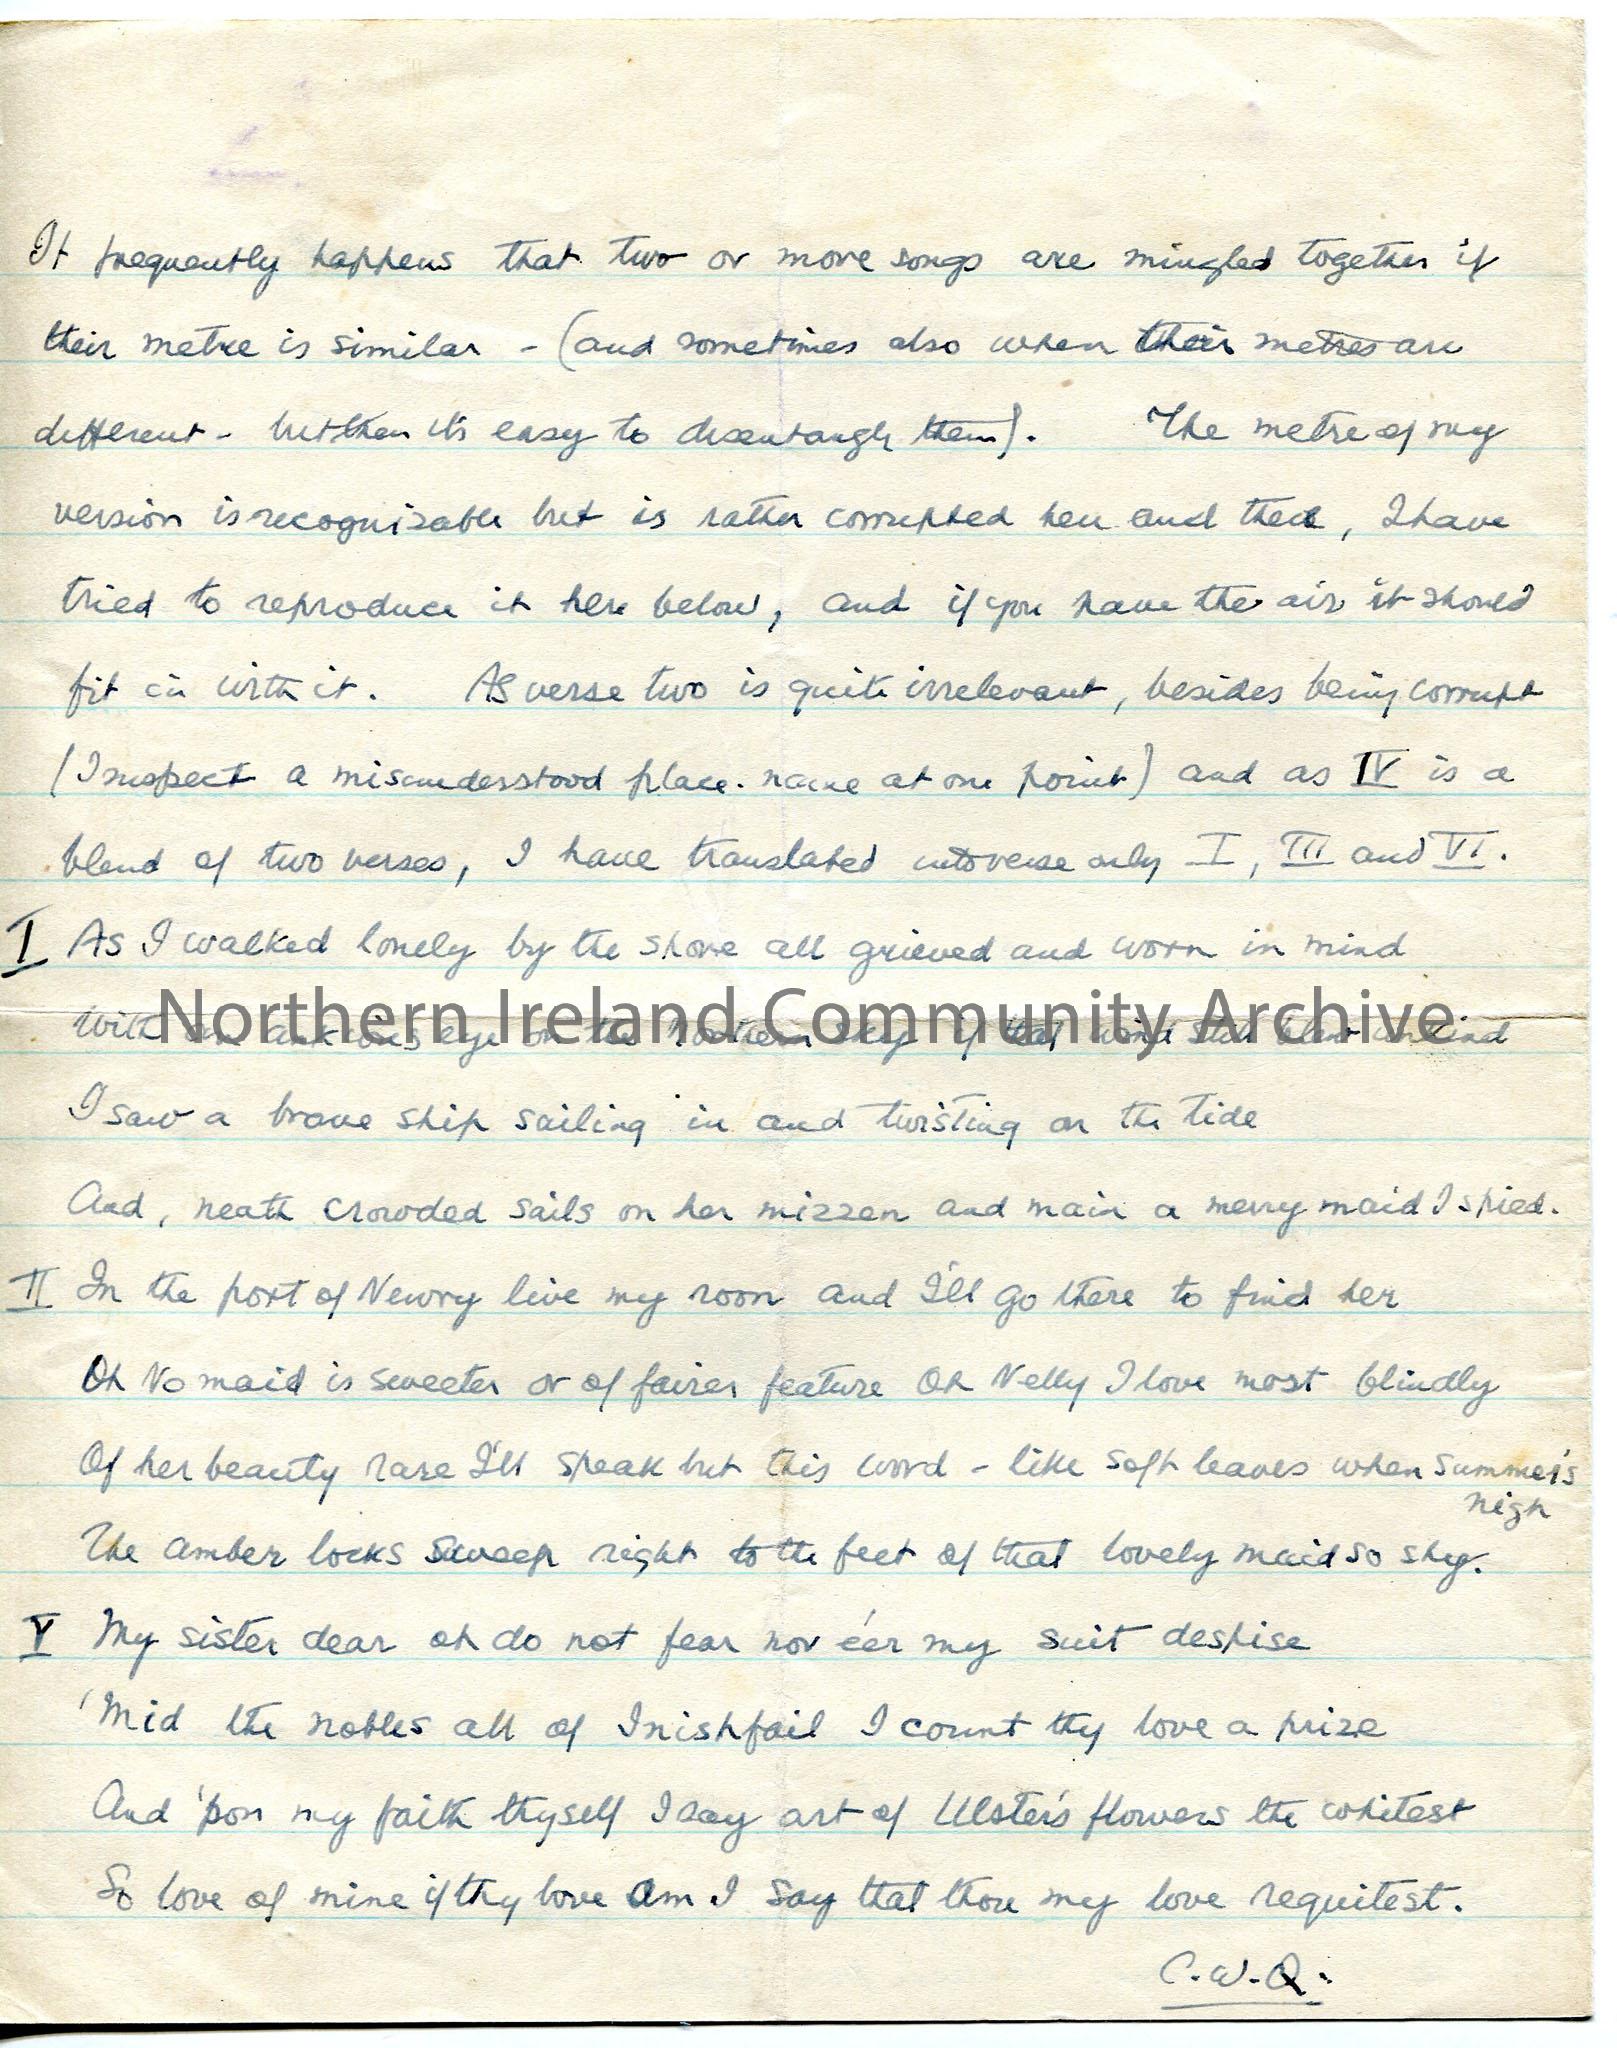 It frequently happens that two or more songs are mingled together if
their metre is similar - (and sometimes also when their metres are
different - but then it's easy to disentangle them). The metre of my
version is recognizable but is rather corrupted here and there, I have
tried to reproduce it here below, and if you have the air it should
fit in with it. As verse two is quite irrelevant, besides being corrupt
(I suspect a misunderstood place-name at one point) and as IV is a
blend of two verses, I have translated into verse only I, III and VI.
I As I walked lonely by the shore all grieved and worn in mind
Northern Ireland Community Archive
With an anxious eye on the Northern sky if that wind still blew unkind
I saw a brave ship sailing in and twisting on the tide
And, neath crowded sails on her mizzen and main a merry maid I spied.
II In the port of Newry live my roon and I'll go there to find her
Oh No maid is sweeter or of fairer feature Oh Nelly I love most blindly
Of her beauty rare I'll speak but this word - like soft leaves when summer's
nigh
The amber locks sweep right to the feet of that lovely maid so shy.
V My sister dear oh do not fear nor e'er my suit despise
'Mid the nobles all of Inishfail I count thy love a prize
And 'pon my faith thyself I say art of Ulster's flowers the whitest
So love of mine if thy love am I say that thou my love requitest.
C.W.Q.